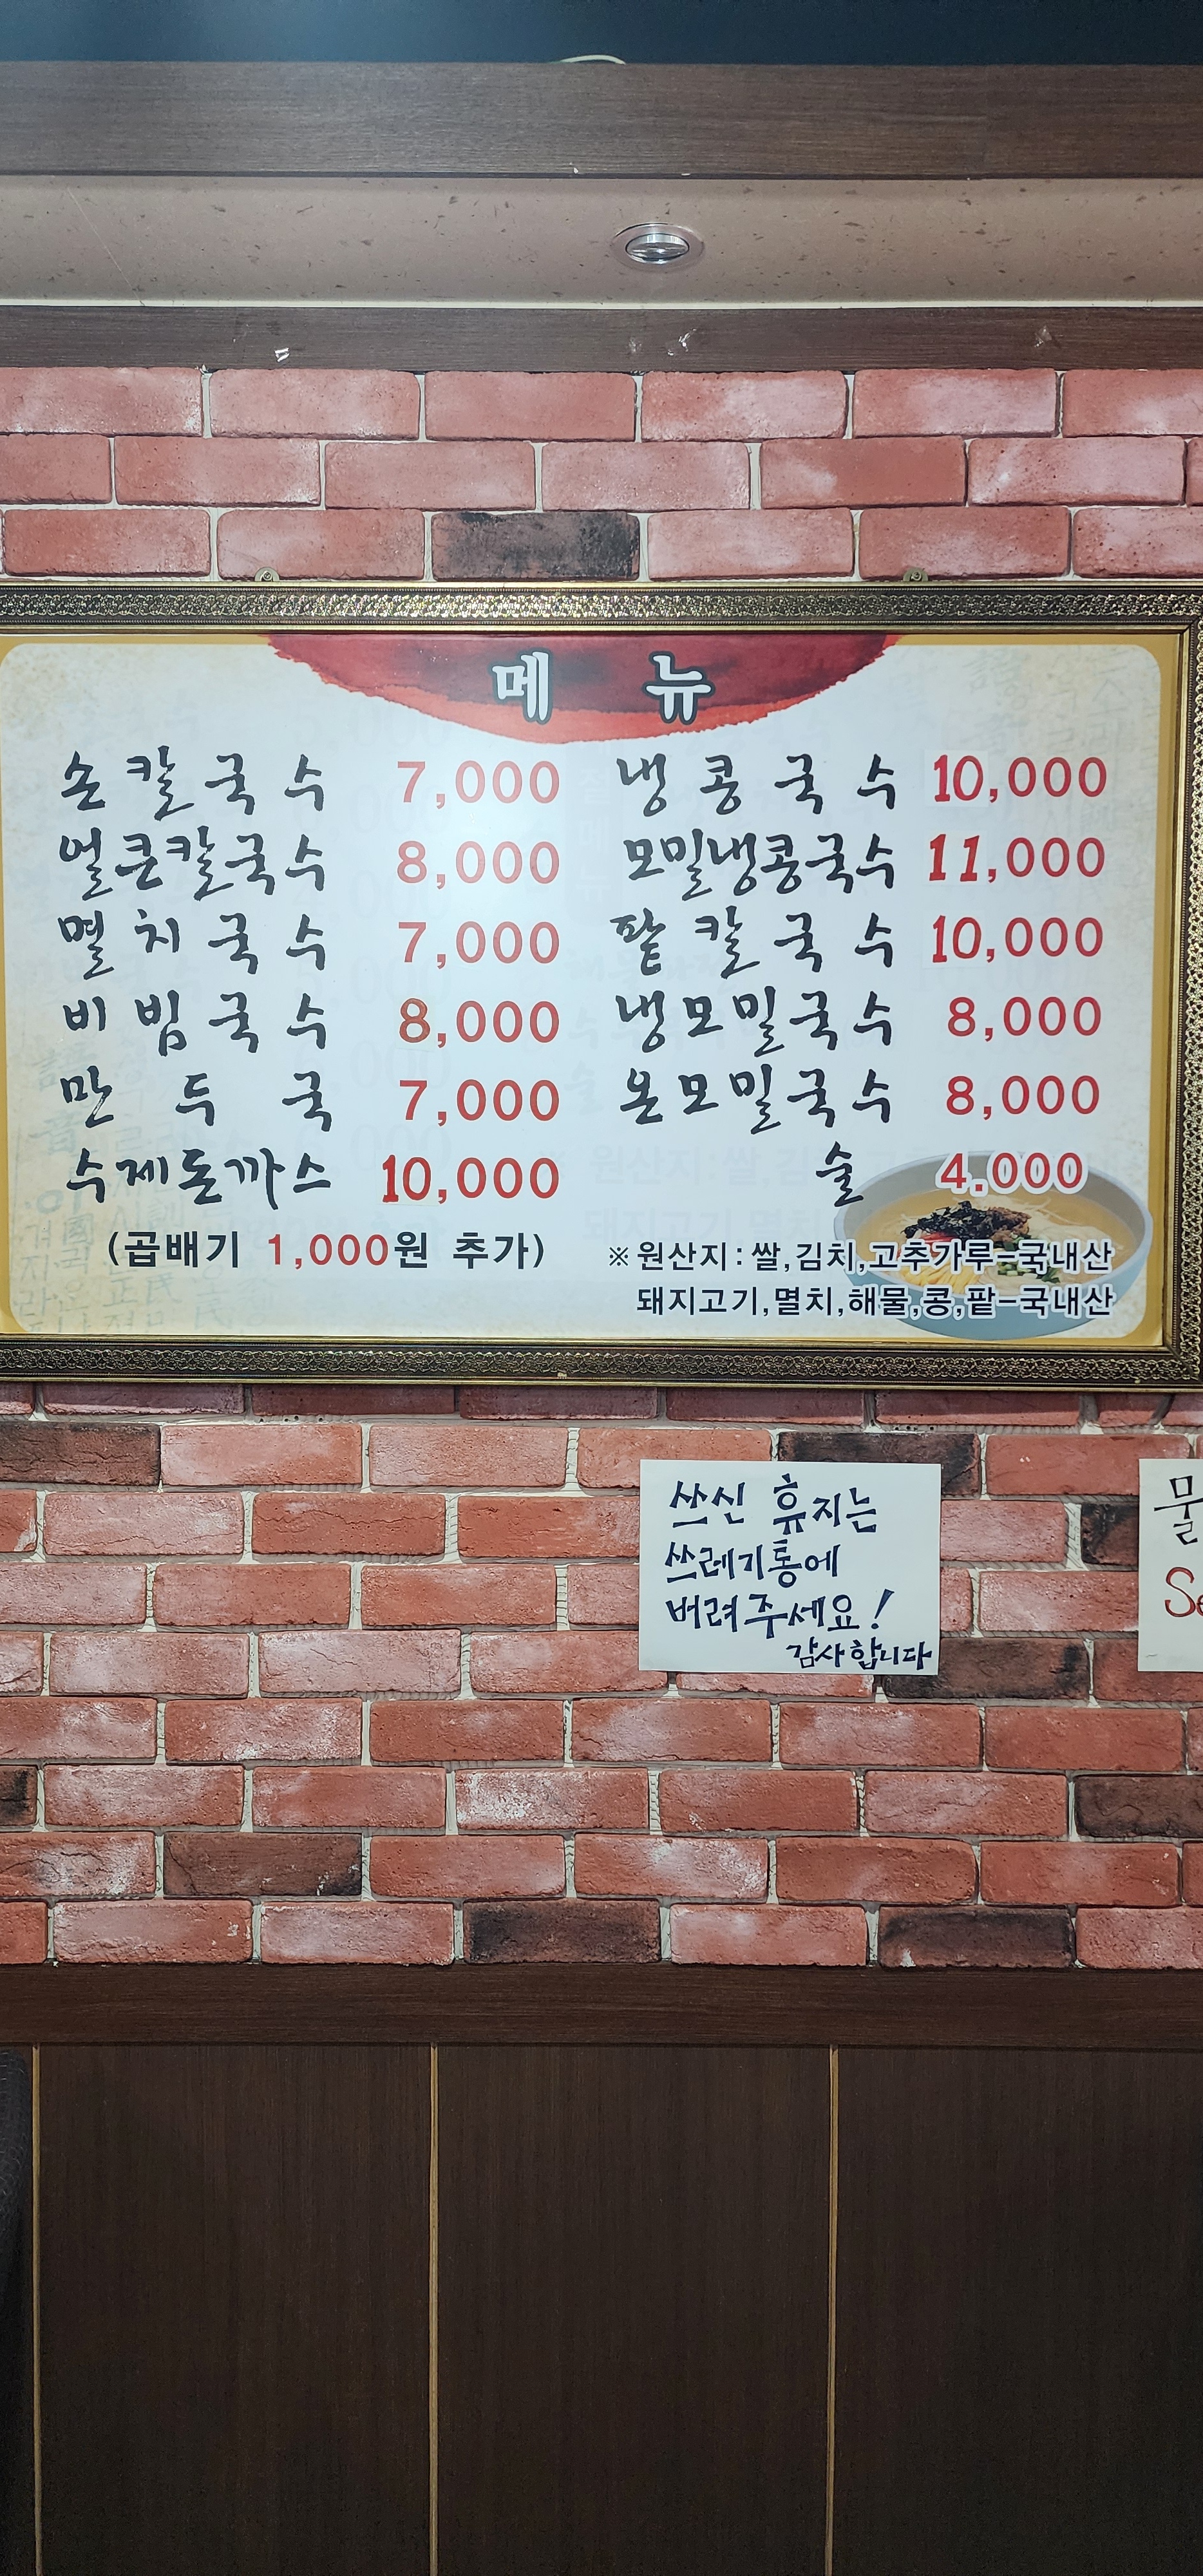 메 뉴
손칼국수 7,000
얼큰칼국수 8,000
멸치국수 7,000
비빔국수 8,000
만두국 7,000
수제돈까스 10,000
(곱배기 1,000원 추가)
냉콩국수 10,000
모밀냉콩국수 11,000
팥칼국수 10,000
냉모밀국수 8,000
온모밀국수 8,000
술 4.000
※원산지:쌀,김치,고추가루-국내산
돼지고기,멸치,해물,콩,팥-국내산
쓰신 휴지는
쓰레기통에
버려주세요!
감사합니다
물
Se